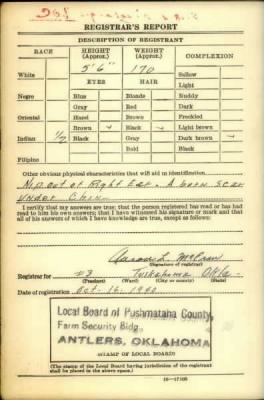 REGISTRAR'S REPORT
DESCRIPTION OF REGISTRANT
RACE HEIGHT (Approx.) WEIGHT (Approx.) COMPLEXION
5' 6" 170
White Sallow
EYES HAIR Light
Negro Blue Blonde Ruddy
Gray Red Dark
Oriental Hazel Brown Freckled
Brown Black Light brown
Indian Black Gray Dark brown
Bald Black
Filipino
Other obvious physical characteristics that will aid in identification
out of Right Ear. A born Scar
Under Chin
I certify that my answers are true; that the person registered has read or has had
read to him his own answers; that I have witnessed his signature or mark and that
all of his answers of which I have knowledge are true, except as follows:
Aaron L.
(Signature of registrar)
Registrar for #3 Tuskahoma Okla.
(Precinct) (Ward) (City or county) (State)
Date of registration Oct. 16, 1940
Local Board of Pushmataha County,
Farm Security Bldg.
ANTLERS, OKLAHOMA
(STAMP OF LOCAL BOARD)
(The stamp of the Local Board having jurisdiction of the registrant
shall be placed in the above space.)